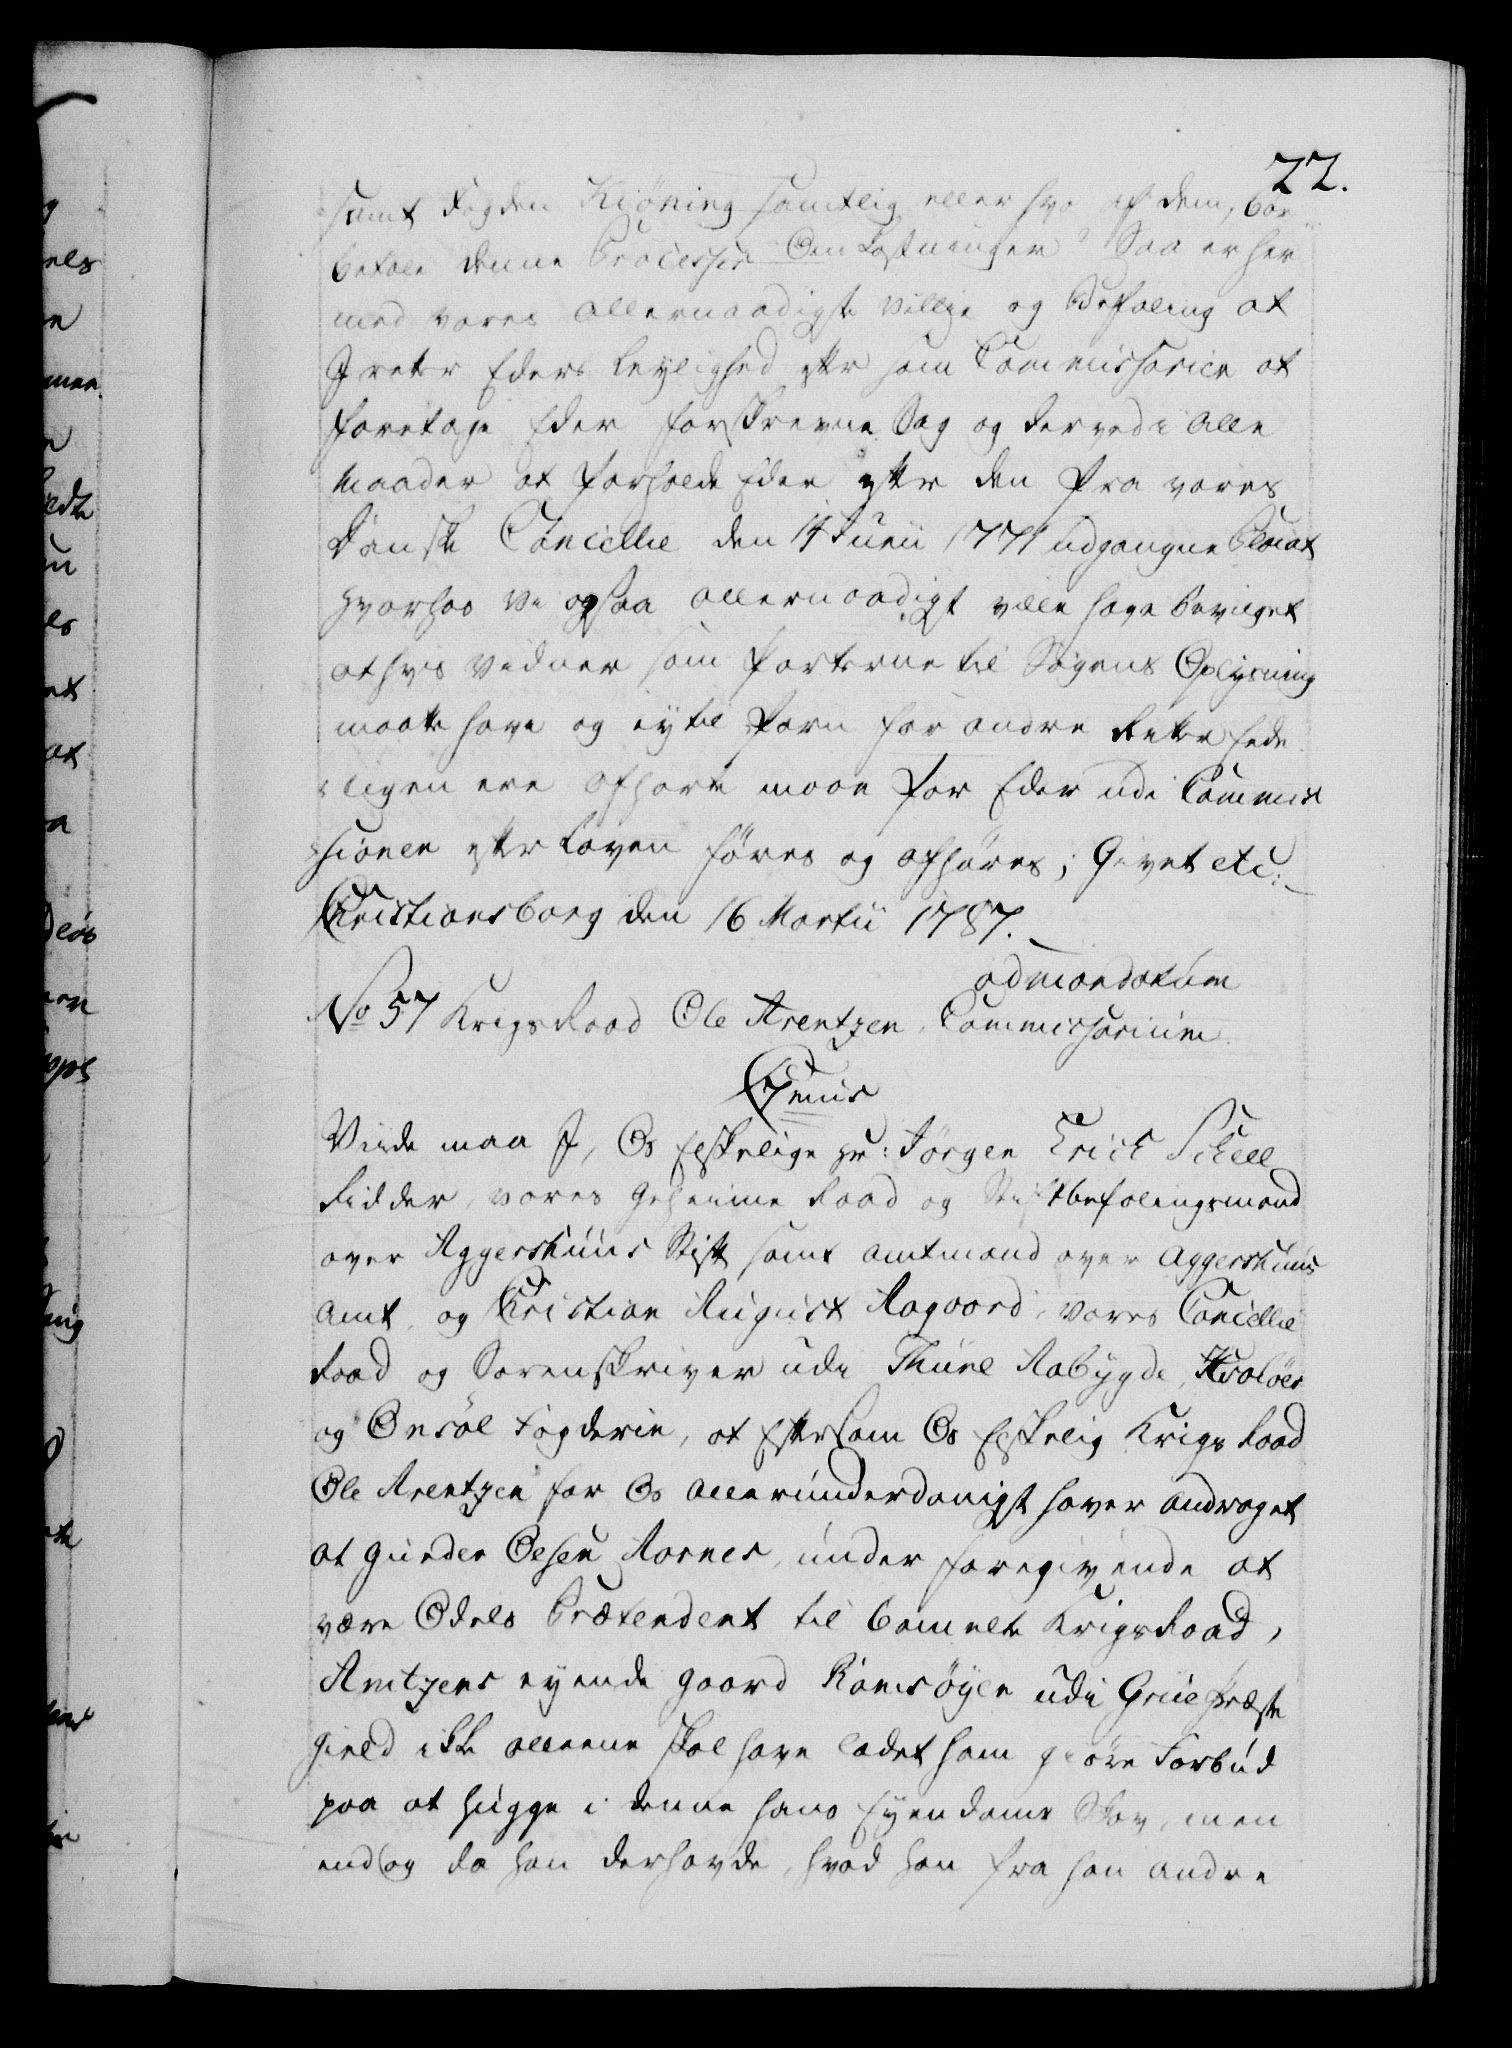 22.
samt Fogden Kiøning samtlig eller hvo af dem, bør
betale denne Processes Omkostninger? Saa er her
med vores allernaadigste Villie og Befaling at
I retter Eders Leylighed efter som Commissarier at
foretage Eder forskrevne Sag og derved i alle
Maader at forholde Eder efter den fra vores
Danske Cancellie den 14 Junii 1771 udgangne Placat
hvorhos Vi ogsaa allernaadigst ville have bevilget
at hvis Vidner som Parterne til Sagens Oplysning
maatte have og ey til forn for andre Retter Eed-
ligen ere afhørte maae for Eder udi Commis
sionen efter Loven føres og afhøres; Givet etc:
Christiansborg den 16 Martii 1787.
ad mandatum
No 57 Krigsraad Ole Arentzen, Commissorium
C7mus
Viide maa I, Os Elskelige Hr: Jørgen Erich Schell
Ridder, vores Geheime Raad og Stiftbefalingsmand
over Aggershuus Stift samt Amtmand over Aggershuus
Amt, og Christian August Aagaard, vores Cancellie
Raad og Sorenskriver udi Thune Aabygde, Fraløer
og Onsøe Fogderie, at Eftersom Os Elskelig Krigs Raad
Ole Arentzen for Os allerunderdanigst haver andraget
at Gunder Olsen Aarnes, under foregivende at
være Odels Prætendent til bemelte Krigs Raad,
Arntzens eyende Gaard Rømsøyen udi Grue Præste
Gield ikke alleene skal have ladet ham giøre Forbud
paa at hugge i denne hans Eyendoms Skov, men
endog da han derhavde, hvad han fra han andre